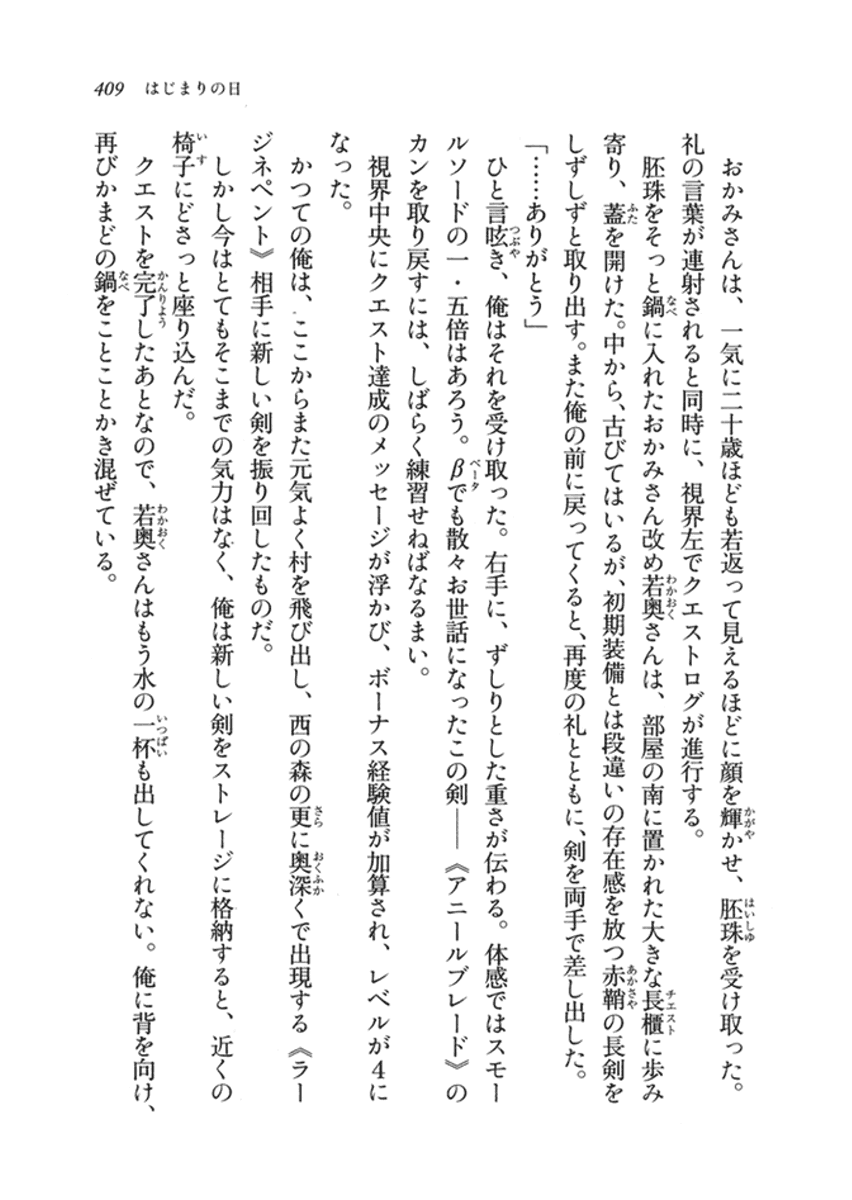 409 はじまりの日
おかみさんは、一気に二十歳ほども若返って見えるほどに顔を輝かせ、胚珠を受け取った。
礼の言葉が連射されると同時に、視界左でクエストログが進行する。
胚珠をそっと鍋に入れたおかみさん改め若奥さんは、部屋の南に置かれた大きな長櫃に歩み
寄り、蓋を開けた。中から、古びてはいるが、初期装備とは段違いの存在感を放つ赤鞘の長剣を
しずしずと取り出す。また俺の前に戻ってくると、再度の礼とともに、剣を両手で差し出した。
「……ありがとう」
ひと言呟き、俺はそれを受け取った。右手に、ずしりとした重さが伝わる。体感ではスモー
ルソードの一・五倍はあろう。βでも散々お世話になったこの剣――《アニールブレード》の
カンを取り戻すには、しばらく練習せねばなるまい。
視界中央にクエスト達成のメッセージが浮かび、ボーナス経験値が加算され、レベルが4に
なった。
かつての俺は、ここからまた元気よく村を飛び出し、西の森の更に奥深くで出現する《ラー
ジネペント》相手に新しい剣を振り回したものだ。
しかし今はとてもそこまでの気力はなく、俺は新しい剣をストレージに格納すると、近くの
椅子にどさっと座り込んだ。
クエストを完了したあとなので、若奥さんはもう水の一杯も出してくれない。俺に背を向け、
再びかまどの鍋をことことかき混ぜている。